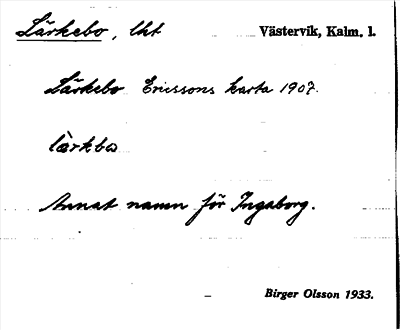 Lärkebo, lht Västervik, Kalm. l.
Lärkebo Ericssons karta 1907.
lærkbo
Annat namn för Ingaborg.
Birger Olsson 1933.